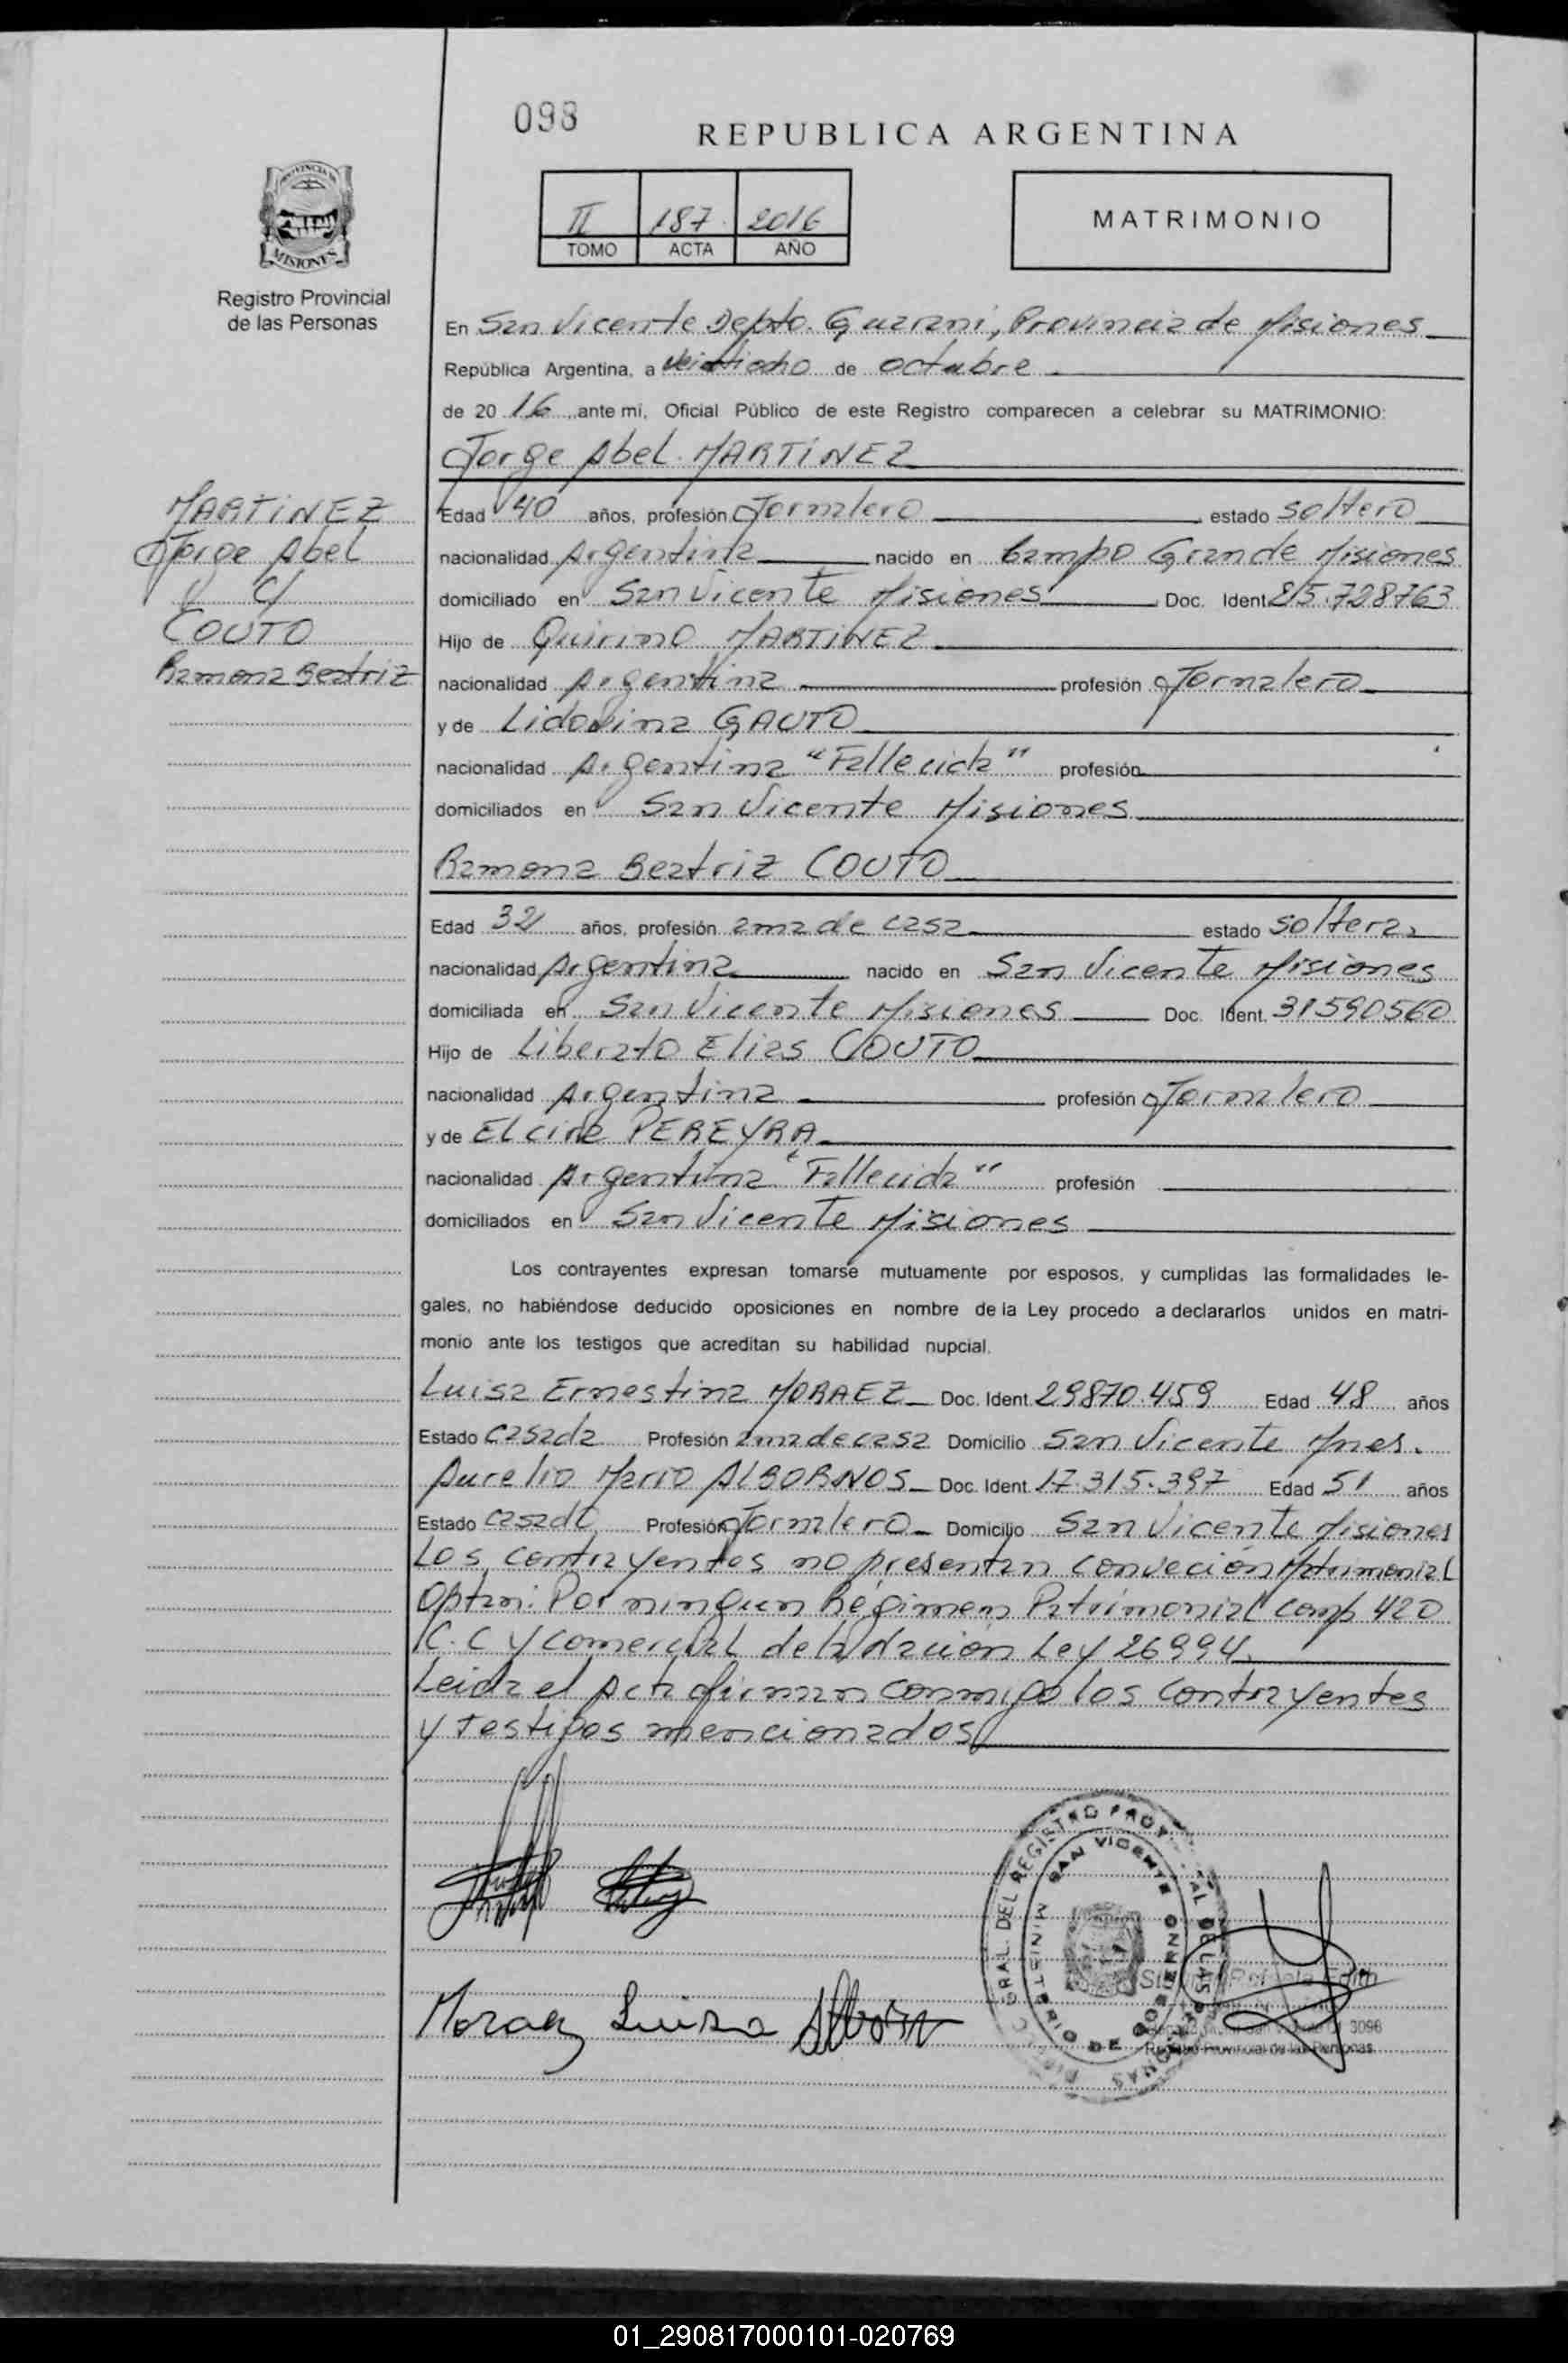 098
REPUBLICA ARGENTINA
II 187 2016
TOMO ACTA AÑO
MATRIMONIO
PROVINCIA DE
MISIONES
Registro Provincial
de las Personas
MARTINEZ
Jorge Abel
C/
COUTO
Ramona Beatriz
En San Vicente Depto. Guarani, Provincia de Misiones
República Argentina, a veintiocho de octubre
de 20 16 ante mi, Oficial Público de este Registro comparecen a celebrar su MATRIMONIO:
Jorge Abel MARTINEZ
Edad 40 años, profesión Jornalero estado soltero
nacionalidad Argentina nacido en Campo Grande Misiones
domiciliado en San Vicente Misiones Doc. Ident 25.728763
Hijo de Quirino MARTINEZ
nacionalidad Argentina profesión Jornalero
y de Lidovina GAUTO
nacionalidad Argentina "Fallecida" profesión
domiciliados en San Vicente Misiones
Ramona Beatriz COUTO
Edad 32 años, profesión ama de casa estado soltera
nacionalidad Argentina nacido en San Vicente Misiones
domiciliada en San Vicente Misiones Doc. Ident. 31590560
Hijo de Liberato Elias COUTO
nacionalidad Argentina profesión Jornalero
y de Elcira PEREYRA
nacionalidad Argentina "Fallecida" profesión
domiciliados en San Vicente Misiones
Los contrayentes expresan tomarse mutuamente por esposos, y cumplidas las formalidades le-
gales, no habiéndose deducido oposiciones en nombre de la Ley procedo a declararlos unidos en matri-
monio ante los testigos que acreditan su habilidad nupcial.
Luisa Ernestina MORAEZ Doc. Ident. 29870.459 Edad 48 años
Estado casada Profesión ama de casa Domicilio San Vicente Mnes.
Aurelio Mario ALBORNOS Doc. Ident. 17.315.397 Edad 51 años
Estado casado Profesión Jornalero Domicilio San Vicente Misiones
Los contrayentes no presentan conveción Matrimonial
Optan: Por ningun Régimen Patrimonial conf 420
C.C y comercial de la Nación Ley 26994
Leida el Acta firman conmigo los contrayentes
y testigos mencionados
GRAL. DEL REGISTRO PROV AL DE LAS PERSONAS
SAN VICENTE
MINISTERIO DE GOBIERNO
Moraez Luisa
3096
Registro Provincial de las Personas
01_290817000101-020769